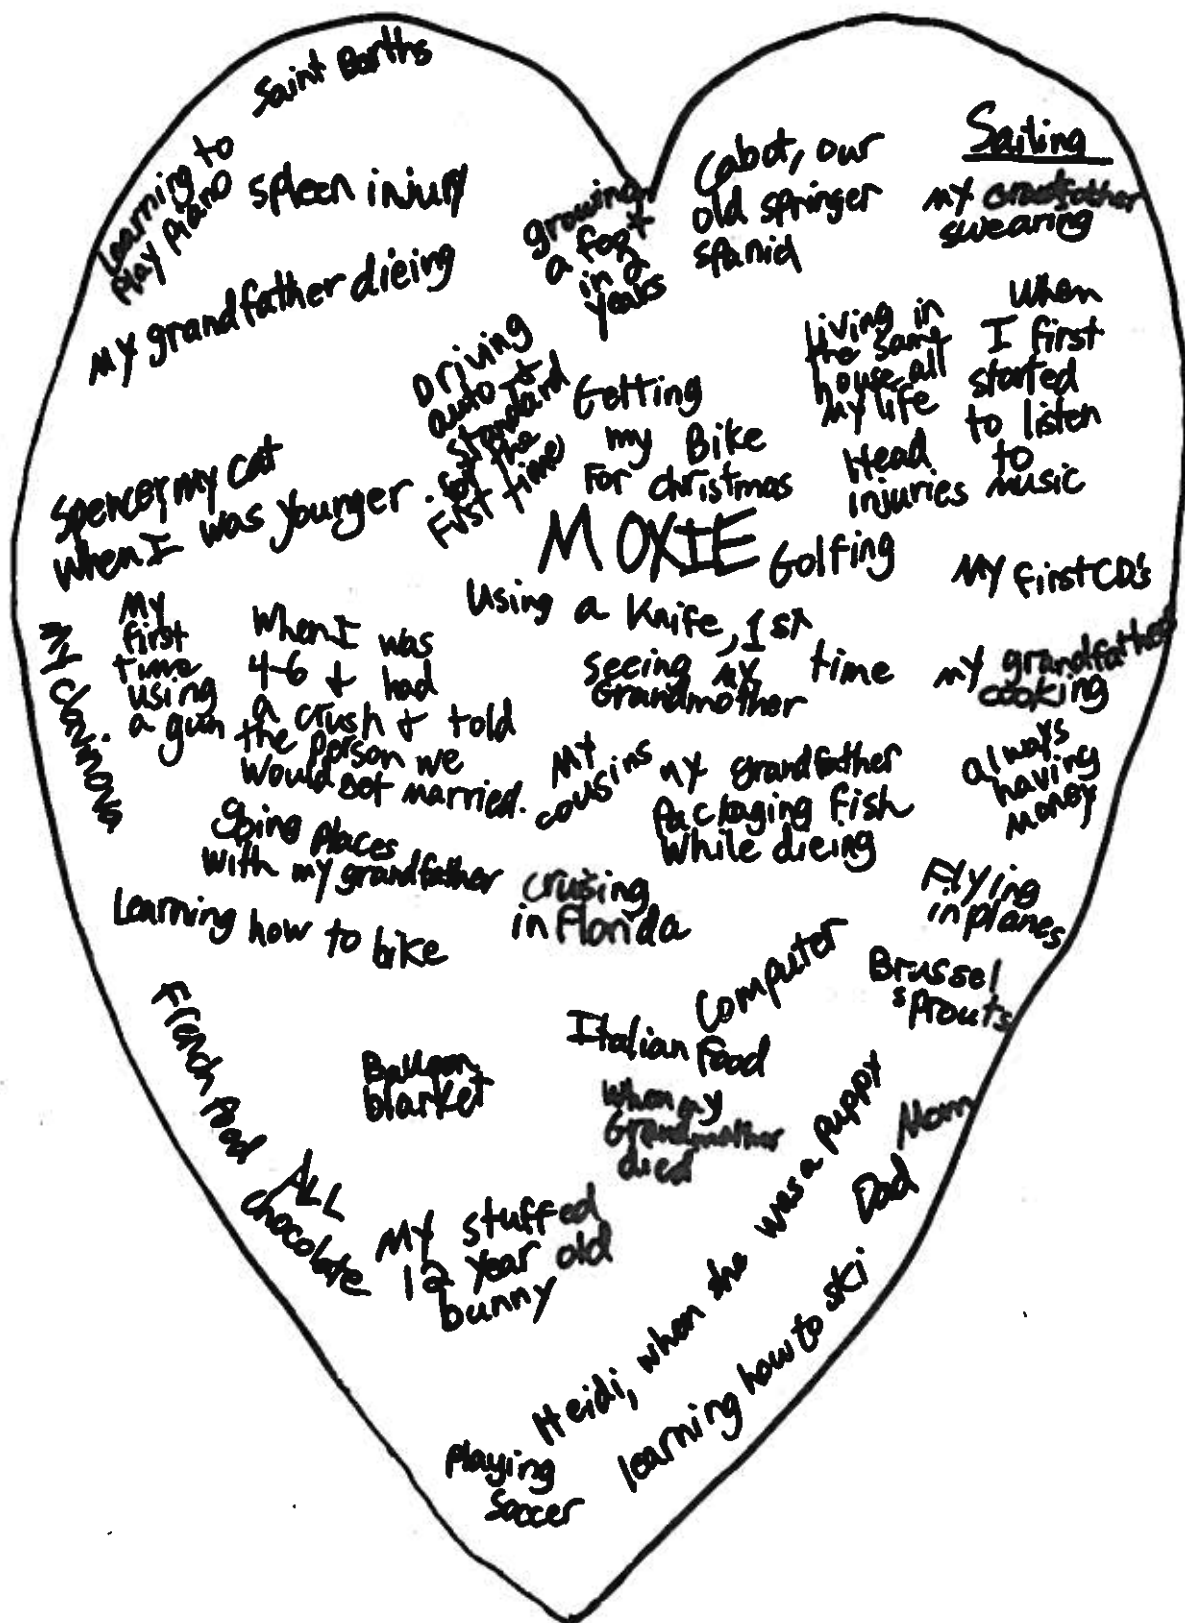 Saint Barths
Learning to
Play Piano
spleen injury
My grandfather dieing
growing
a foot
in 2
years
Cabot, our
old springer
spaniel
Sailing
my grandfather
swearing
Driving
auto &
standard
for the
First time
Getting
my Bike
For christmas
Living in
the same
house all
my life
When
I first
started
to listen
to
music
Head
injuries
Spencer my cat
when I was younger.
MOXIE
Golfing
My first CD's
Using a Knife, 1st
time
seeing my
Grandmother
My
first
time
using
a gun
When I was
4-6 & had
a crush & told
the person we
would get married.
my grandfather
cooking
My
cousins
my grandfather
Packaging fish
While dieing
always
having
money
going places
with my grandfather
crusing
in Florida
Flying
in planes
Learning how to bike
Computer
Brussel
sprouts
French food
Italian Food
Balloon
blanket
When my
Grandmother
died
Mom
Dad
ALL
chocolate
My stuffed
12 year old
bunny
Heidi, when she was a puppy
learning how to ski
Playing
Soccer